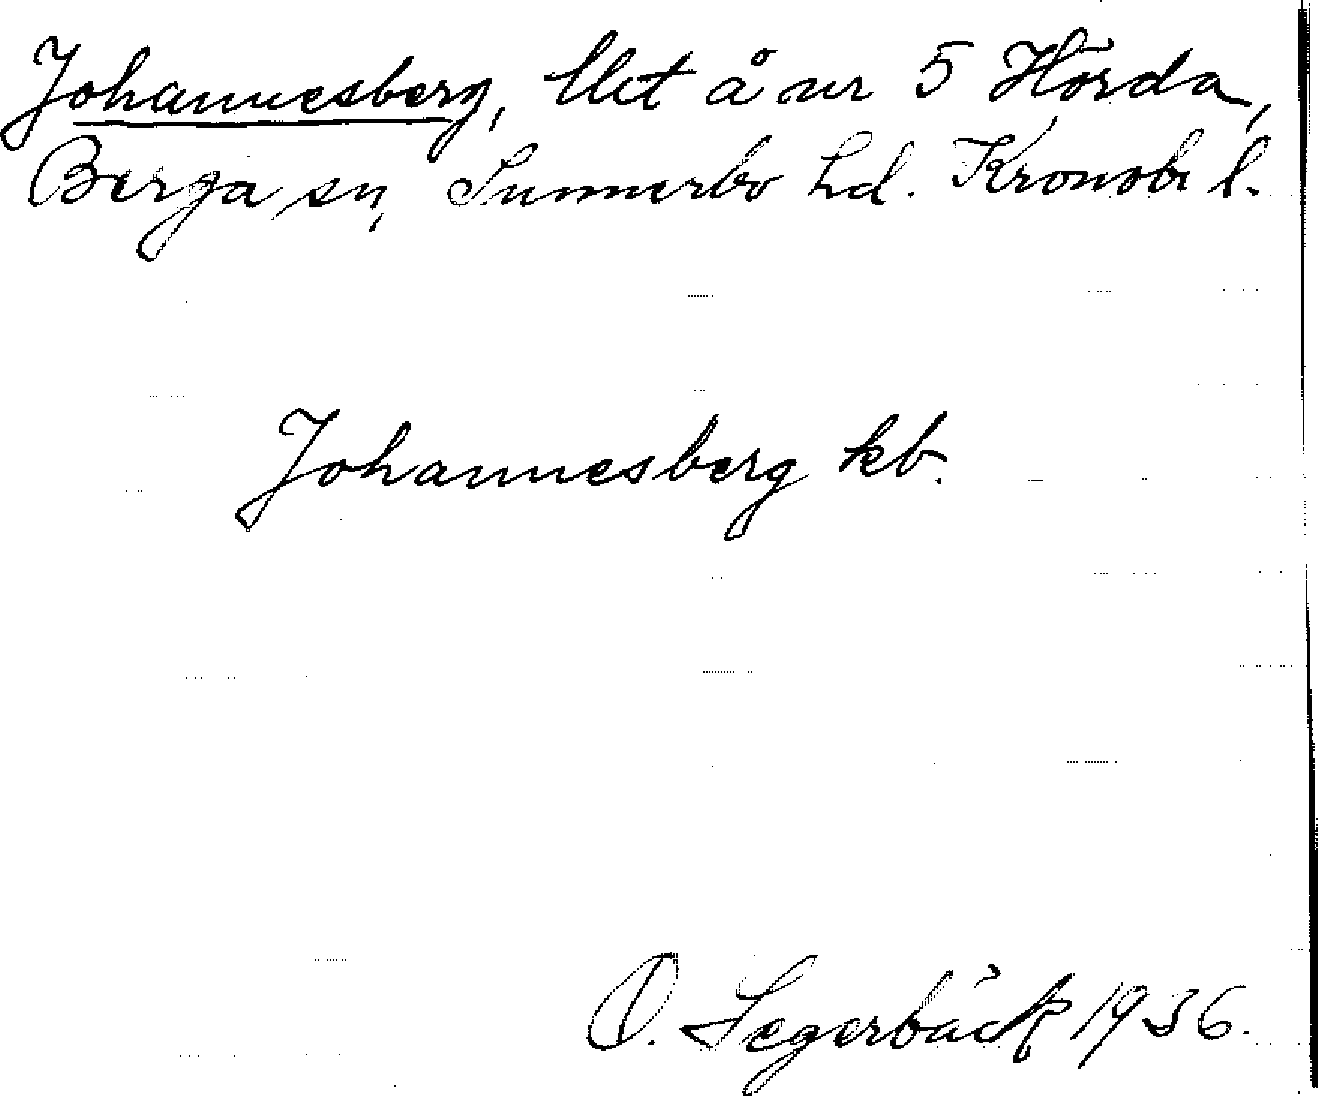 Johannesberg, lht å nr 5 Hörda,
Berga sn, Sunnerbo hd. Kronobr l.
Johannesberg kb.
O. Segerbäck 1936.